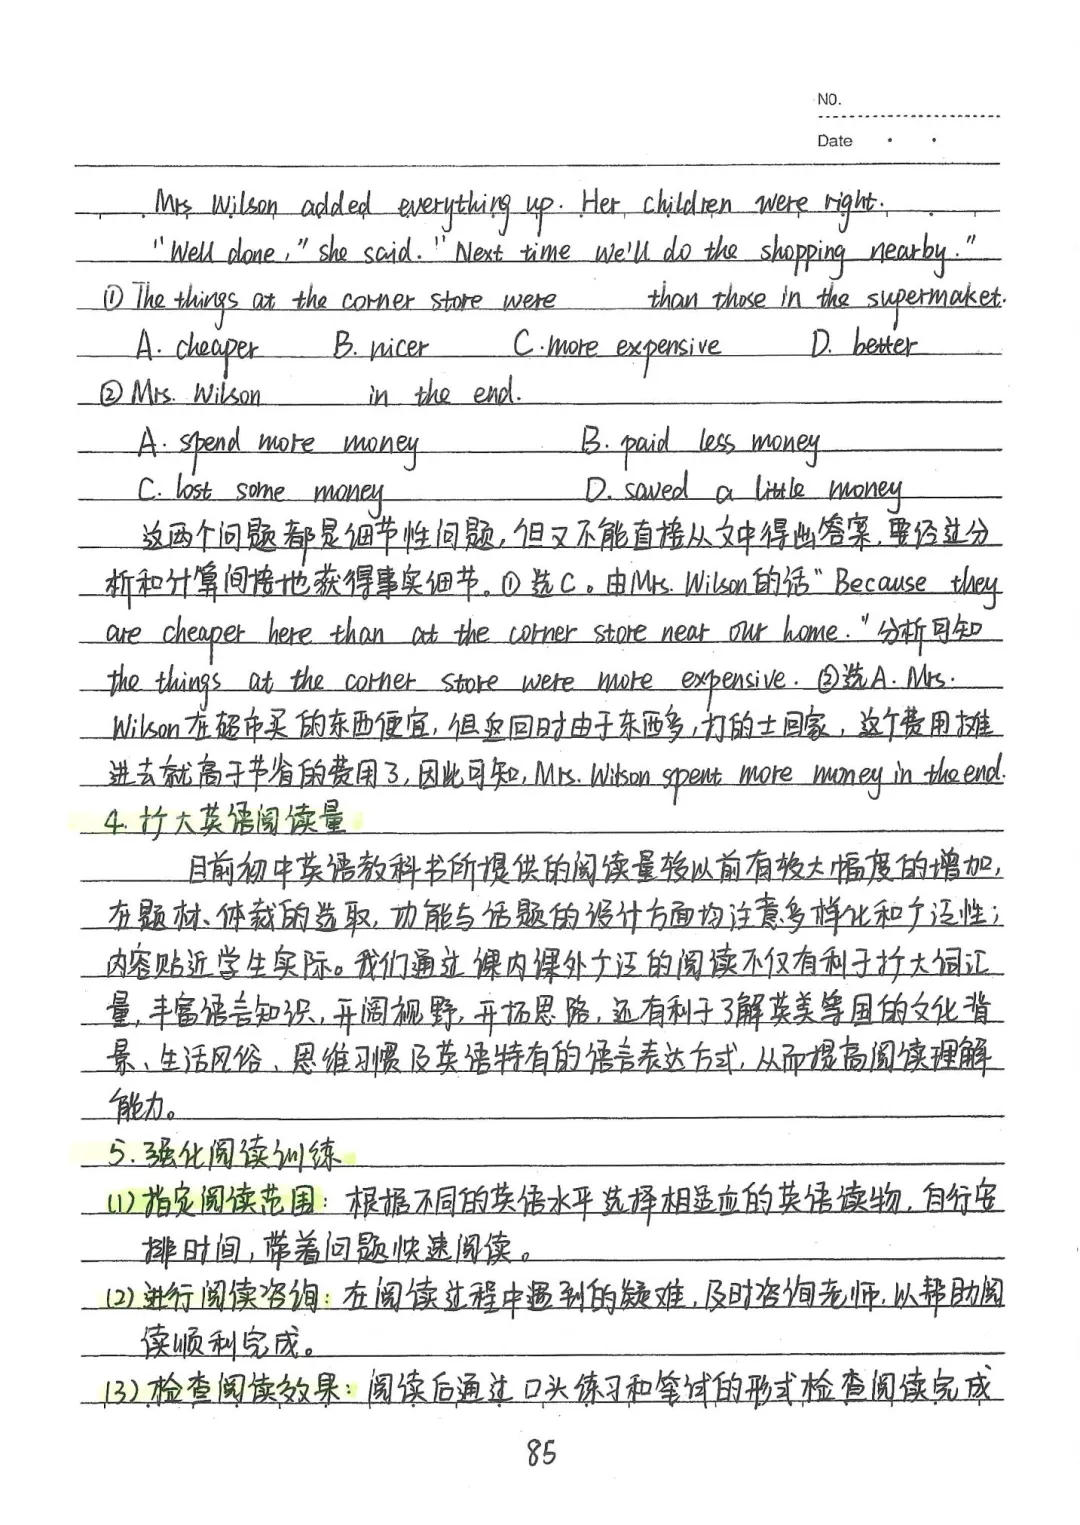 NO.
Date
Mrs Wilson added everything up. Her children were right.
"Well done," she said. "Next time we'll do the shopping nearby."
① The things at the corner store were than those in the supermaket.
A. cheaper B. nicer C. more expensive D. better
② Mrs. Wilson in the end.
A. spend more money B. paid less money
C. lost some money D. saved a little money
这两个问题都是细节性问题,但又不能直接从文中得出答案,要经过分
析和计算间接地获得事实细节。①选C。由Mrs. Wilson的话"Because they
are cheaper here than at the corner store near our home."分析可知
the things at the corner store were more expensive. ②选A. Mrs.
Wilson在超市买的东西便宜,但返回时由于东西多,打的士回家,这个费用摊
进去就高于节省的费用了,因此可知, Mrs. Wilson spent more money in the end.
4. 扩大英语阅读量
目前初中英语教科书所提供的阅读量较以前有较大幅度的增加,
在题材、体裁的选取,功能与话题的设计方面均注意多样化和广泛性;
内容贴近学生实际。我们通过课内课外广泛的阅读不仅有利于扩大词汇
量,丰富语言知识,开阔视野,开拓思路,还有利于了解英美等国的文化背
景、生活风俗、思维习惯及英语特有的语言表达方式,从而提高阅读理解
能力。
5. 强化阅读训练
(1) 指定阅读范围: 根据不同的英语水平选择相适应的英语读物,自行安
排时间,带着问题快速阅读。
(2) 进行阅读咨询: 在阅读过程中遇到的疑难,及时咨询老师,以帮助阅
读顺利完成。
(3) 检查阅读效果: 阅读后通过口头练习和笔试的形式检查阅读完成
85